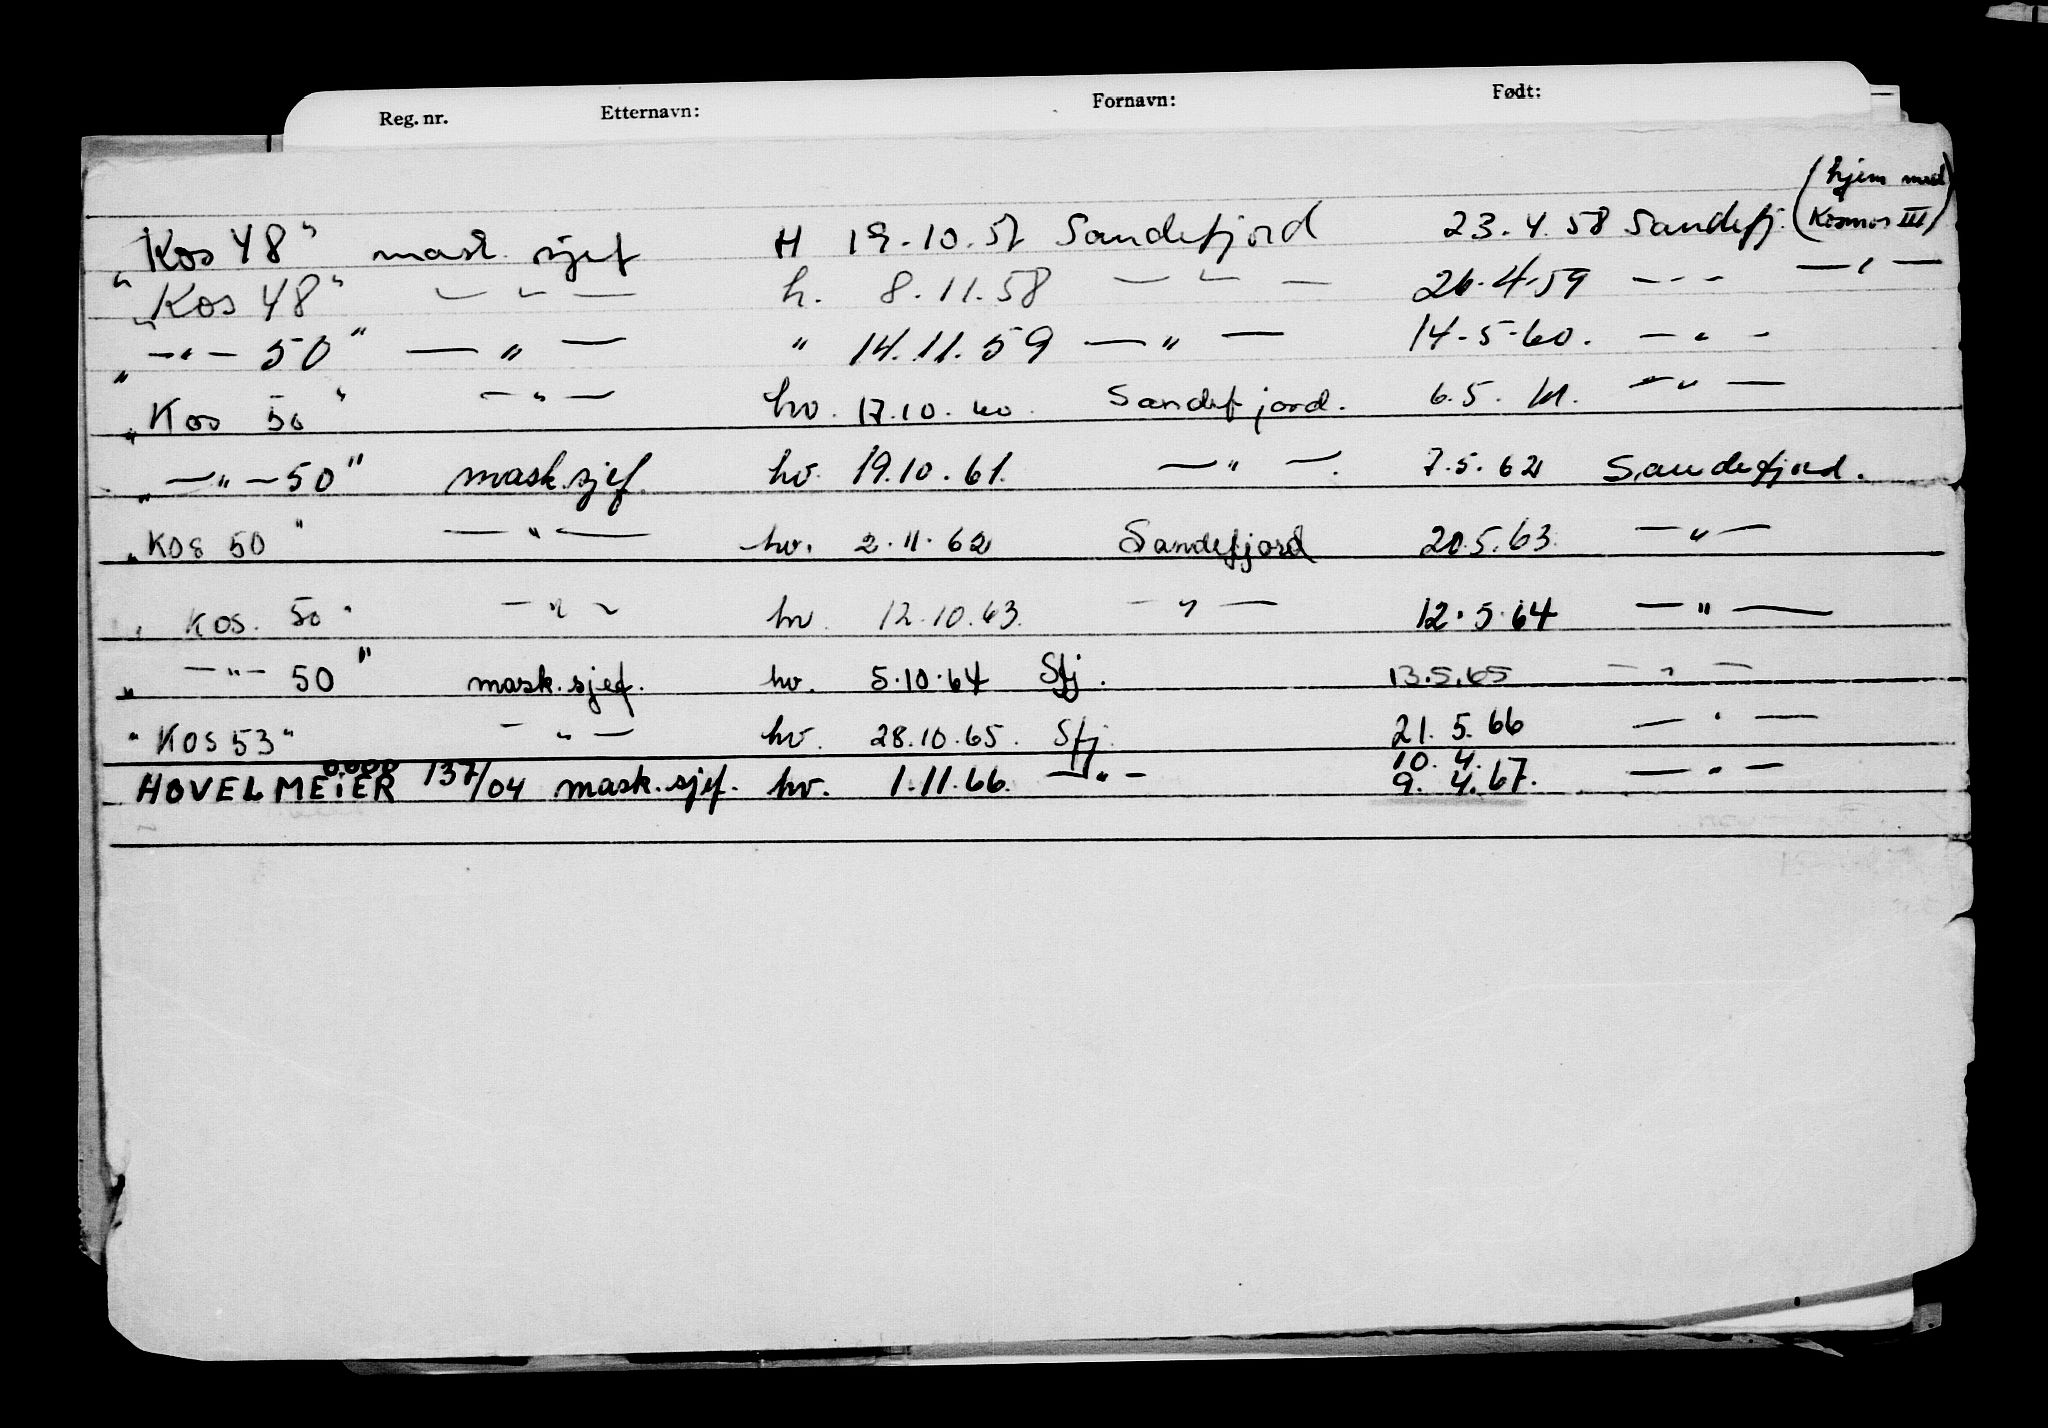 Reg. nr. Etternavn: Fornavn: Født:
(hjem med
"Kos 48" mask. sjef H 19.10.57 Sandefjord 23.4.58 Sandefj. Kosmos III)
"Kos 48" — " — h. 8.11.58 — " — 26.4.59 - - - — " —
" — " — 50" — " — " 14.11.59 — " — 14-5-60. — " —
"Kos 50" — " — hv. 17.10.60. Sandefjord. 6.5.61. — " —
" — " — 50" mask.sjef. hv. 19.10.61. — " —. 7.5.62 Sandefjord.
"KOS 50" — " — hv. 2.11.62 Sandefjord 20.5.63. — " —
"KOS. 50" — " — hv. 12.10.63. — " — 12.5.64 — " —
" — " — 50" mask.sjef. hv. 5.10.64 Sfj. 13.5.65 — " —
"KOS 53" — " — hv. 28.10.65. Sfj. 21.5.66 — " —
10.4.
HOVELMEIER 137/04 mask.sjef. hv. 1.11.66. — " — 9.4.67. — " —